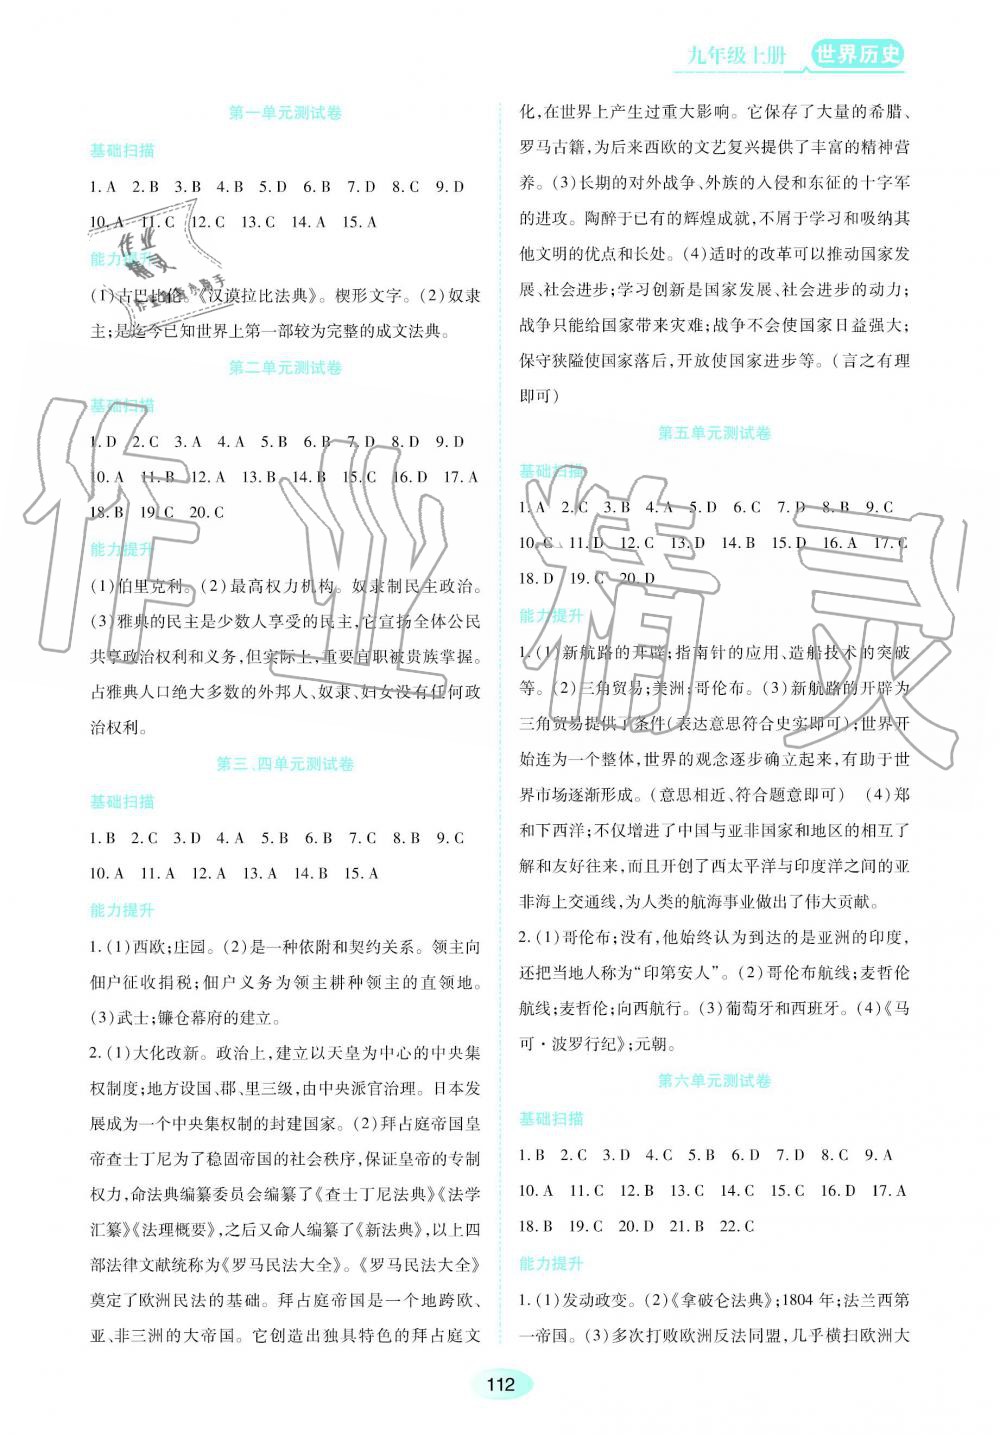 九年级上册 世界历史
第一单元测试卷
基础扫描
1. A 2. B 3. B 4. B 5. D 6. B 7. D 8. C 9. D
10. A 11. C 12. C 13. C 14. A 15. A
能力提升
(1)古巴比伦。《汉谟拉比法典》。楔形文字。(2)奴隶
主;是迄今已知世界上第一部较为完整的成文法典。
第二单元测试卷
基础扫描
1. D 2. C 3. A 4. A 5. B 6. B 7. D 8. D 9. D
10. A 11. B 12. A 13. B 14. B 15. C 16. D 17. A
18. B 19. C 20. C
能力提升
(1)伯里克利。(2)最高权力机构。奴隶制民主政治。
(3)雅典的民主是少数人享受的民主,它宣扬全体公民
共享政治权利和义务,但实际上,重要官职被贵族掌握。
占雅典人口绝大多数的外邦人、奴隶、妇女没有任何政
治权利。
第三、四单元测试卷
基础扫描
1. B 2. C 3. D 4. A 5. B 6. B 7. C 8. B 9. C
10. A 11. A 12. A 13. A 14. B 15. A
能力提升
1. (1)西欧;庄园。(2)是一种依附和契约关系。领主向
佃户征收捐税;佃户义务为领主耕种领主的直领地。
(3)武士;镰仓幕府的建立。
2. (1)大化改新。政治上,建立以天皇为中心的中央集
权制度;地方设国、郡、里三级,由中央派官治理。日本发
展成为一个中央集权制的封建国家。(2)拜占庭帝国皇
帝查士丁尼为了稳固帝国的社会秩序,保证皇帝的专制
权力,命法典编纂委员会编纂了《查士丁尼法典》《法学
汇纂》《法理概要》,之后又命人编纂了《新法典》,以上四
部法律文献统称为《罗马民法大全》。《罗马民法大全》
奠定了欧洲民法的基础。拜占庭帝国是一个地跨欧、
亚、非三洲的大帝国。它创造出独具特色的拜占庭文
化,在世界上产生过重大影响。它保存了大量的希腊、
罗马古籍,为后来西欧的文艺复兴提供了丰富的精神营
养。(3)长期的对外战争、外族的入侵和东征的十字军
的进攻。陶醉于已有的辉煌成就,不屑于学习和吸纳其
他文明的优点和长处。(4)适时的改革可以推动国家发
展、社会进步;学习创新是国家发展、社会进步的动力;
战争只能给国家带来灾难;战争不会使国家日益强大;
保守狭隘使国家落后,开放使国家进步等。(言之有理
即可)
第五单元测试卷
基础扫描
1. A 2. C 3. B 4. A 5. D 6. C 7. D 8. B 9. C
10. C 11. D 12. C 13. D 14. B 15. D 16. A 17. C
18. D 19. C 20. D
能力提升
1. (1)新航路的开辟;指南针的应用、造船技术的突破
等。(2)三角贸易;美洲;哥伦布。(3)新航路的开辟为
三角贸易提供了条件(表达意思符合史实即可);世界开
始连为一个整体,世界的观念逐步确立起来,有助于世
界市场逐渐形成。(意思相近、符合题意即可) (4)郑
和下西洋;不仅增进了中国与亚非国家和地区的相互了
解和友好往来,而且开创了西太平洋与印度洋之间的亚
非海上交通线,为人类的航海事业做出了伟大贡献。
2. (1)哥伦布;没有,他始终认为到达的是亚洲的印度,
还把当地人称为“印第安人”。(2)哥伦布航线;麦哲伦
航线;麦哲伦;向西航行。(3)葡萄牙和西班牙。(4)《马
可·波罗行纪》;元朝。
第六单元测试卷
基础扫描
1. B 2. C 3. D 4. A 5. D 6. B 7. C 8. C 9. A
10. A 11. C 12. B 13. C 14. C 15. C 16. D 17. A
18. B 19. C 20. D 21. B 22. C
能力提升
1. (1)发动政变。(2)《拿破仑法典》;1804年;法兰西第
一帝国。(3)多次打败欧洲反法同盟,几乎横扫欧洲大
112
作业精灵
作业精灵